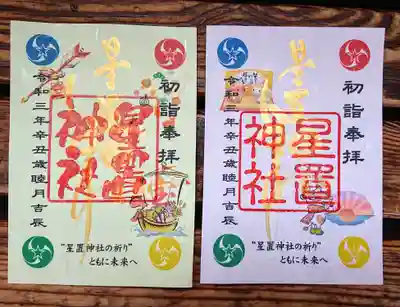 初詣奉拝
星置神社
令和三年辛丑歳睦月吉辰
"星置神社の祈り"
ともに未来へ
初詣奉拝
星置神社
令和三年辛丑歳睦月吉辰
"星置神社の祈り"
ともに未来へ